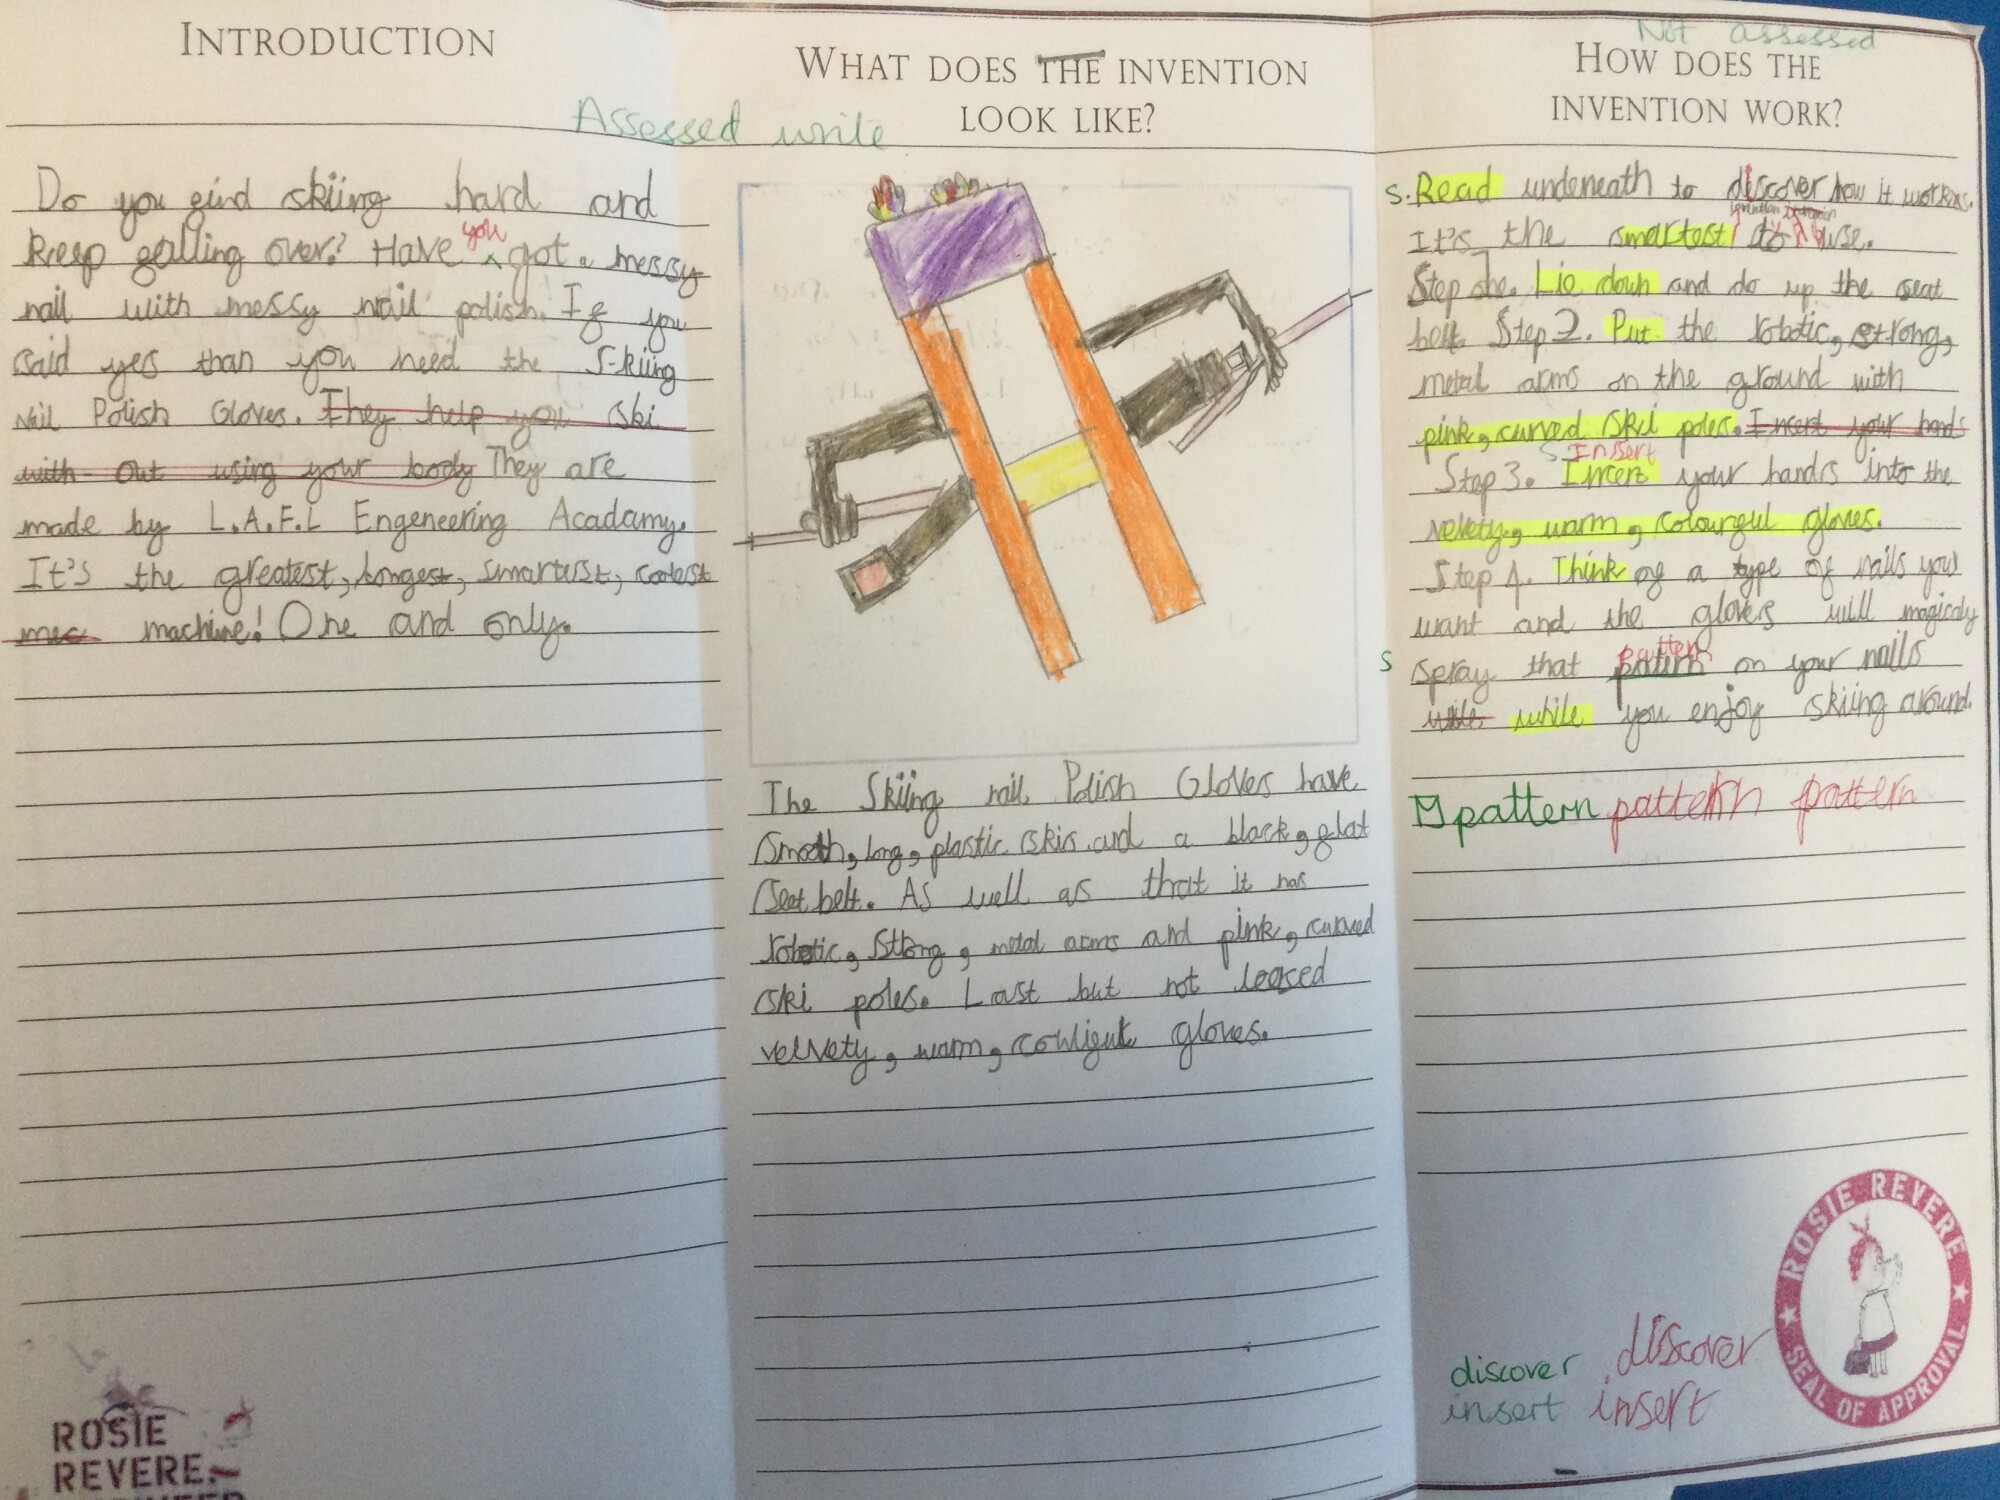 INTRODUCTION
Assessed write
Do you find skiing hard and
keep falling over? Have you got a messy
nail with messy nail polish. If you
said yes than you need the Skiing
Nail Polish Gloves. They help you ski
with-out using your body They are
made by L.A.F.L Engeneering Acadamy.
It's the greatest, longest, smartest, coolest
mec machine! One and only.
ROSIE
REVERE
WHAT DOES THE INVENTION
LOOK LIKE?
The Skiing nail Polish Gloves have
smooth, long, plastic skis and a black, flat
seat belt. As well as that it has
robotic, strong, metal arms and pink, curved
ski poles. Last but not leased
velvety, warm, gloves.
Not assessed
HOW DOES THE
INVENTION WORK?
s. Read underneath to discover how it works.
It's the smartest to use.
Step one. Lie down and do up the seat
belt. Step 2. Put the robotic, strong,
metal arms on the ground with
pink, curved ski poles. Incert your hands
s Insert
Step 3. Incert your hands into the
velvety, warm, colourful gloves.
Step 4. Think of a type of nails you
want and the glovers will magicaly
pattern
s spray that on your nails
while you enjoy skiing around.
pattern pattern pattern
discover discover
insert insert
ROSIE REVERE
SEAL OF APPROVAL